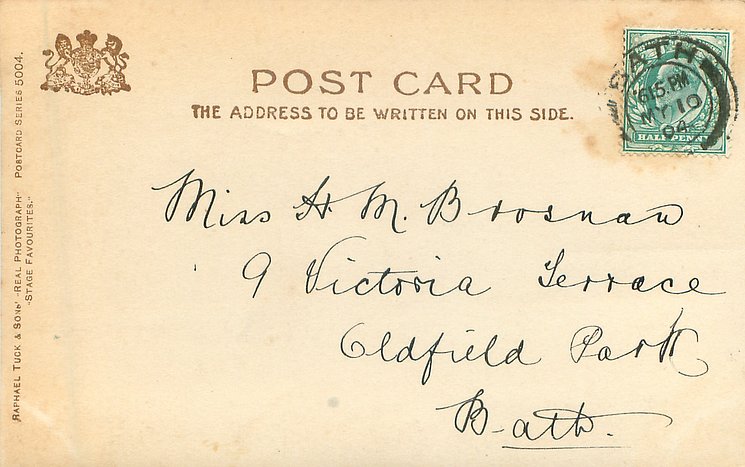 POST CARD
THE ADDRESS TO BE WRITTEN ON THIS SIDE.
BATH
6 15. PM
MY 10
04
HALFPENNY
Miss H. M. Brosnan
9 Victoria Terrace
Oldfield Park
Bath.
RAPHAEL TUCK & SONS' "REAL PHOTOGRAPH" POSTCARD SERIES 5004.
"STAGE FAVOURITES."